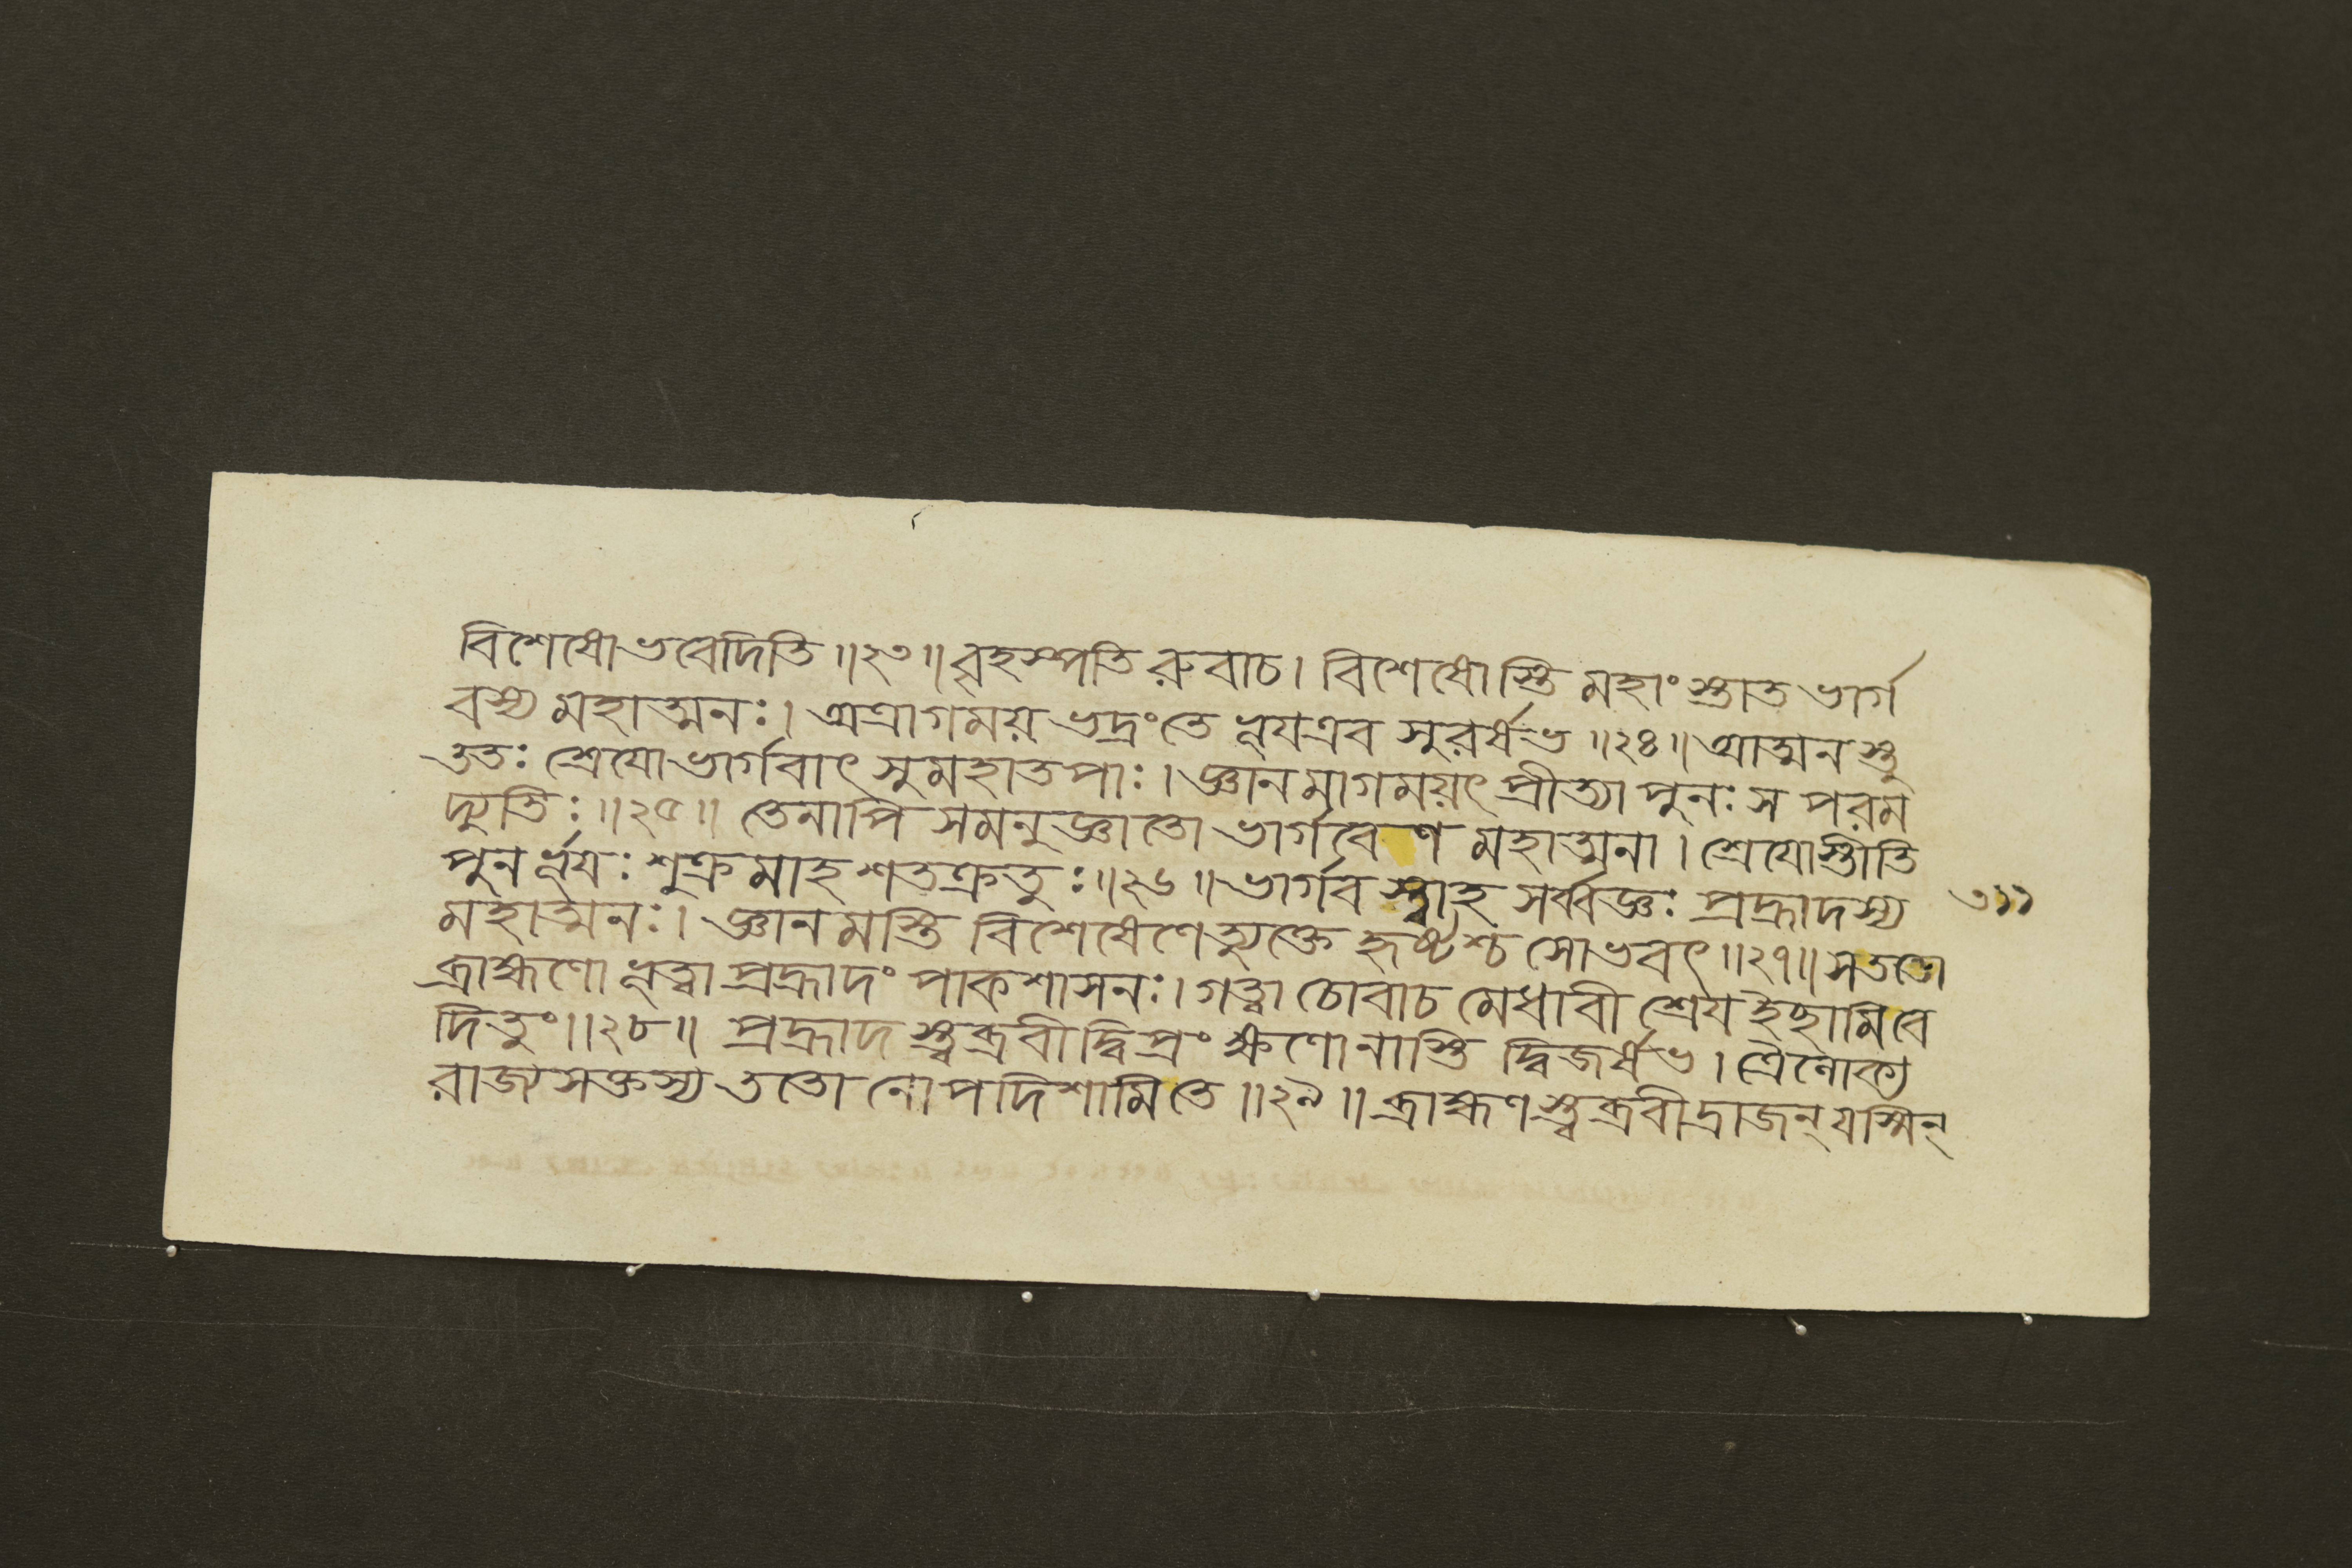 বিশেষো ভবেদিতি ॥২৩॥ বৃহস্পতিরুবাচ । বিশেষোস্তি মহাংস্তাত ভার্গ
বস্য মহাত্মনঃ । অত্রাগময় ভদ্রং তে ভূয এব সুরর্ষভ ॥২৪॥ আত্মনস্তু
ততঃ শ্রেযো ভার্গবাৎ সুমহাতপাঃ । জ্ঞানমাগময়ৎ প্রীত্যা পুনঃ স পরম
দ্যুতিঃ ॥২৫॥ তেনাপি সমনুজ্ঞাতো ভার্গবেণ মহাত্মনা । শ্রেযোস্তীতি
পুনর্ভূযঃ শুক্রমাহ শতক্রতুঃ ॥২৬॥ ভার্গবস্ত্বাহ সর্ব্বজ্ঞঃ প্রহ্লাদস্য
৩১১
মহাত্মনঃ । জ্ঞানমস্তি বিশেষেণেত্যুক্তে হৃষ্টশ্চ সোভবৎ ॥২৭॥ স ততো
ব্রাহ্মণো ভূত্বা প্রহ্লাদং পাকশাসনঃ । গত্বা চোবাচ মেধাবী শ্রেয ইছামি বে
দিতুং ॥২৮॥ প্রহ্লাদস্ত্বব্রবীদ্বিপ্রং ক্ষণো নাস্তি দ্বিজর্ষভ । ত্রৈলোক্য
রাজ্যসক্তস্য ততো নোপদিশামি তে ॥২৯॥ ব্রাহ্মণস্ত্বব্রবীদ্রাজন্ যস্মিন্